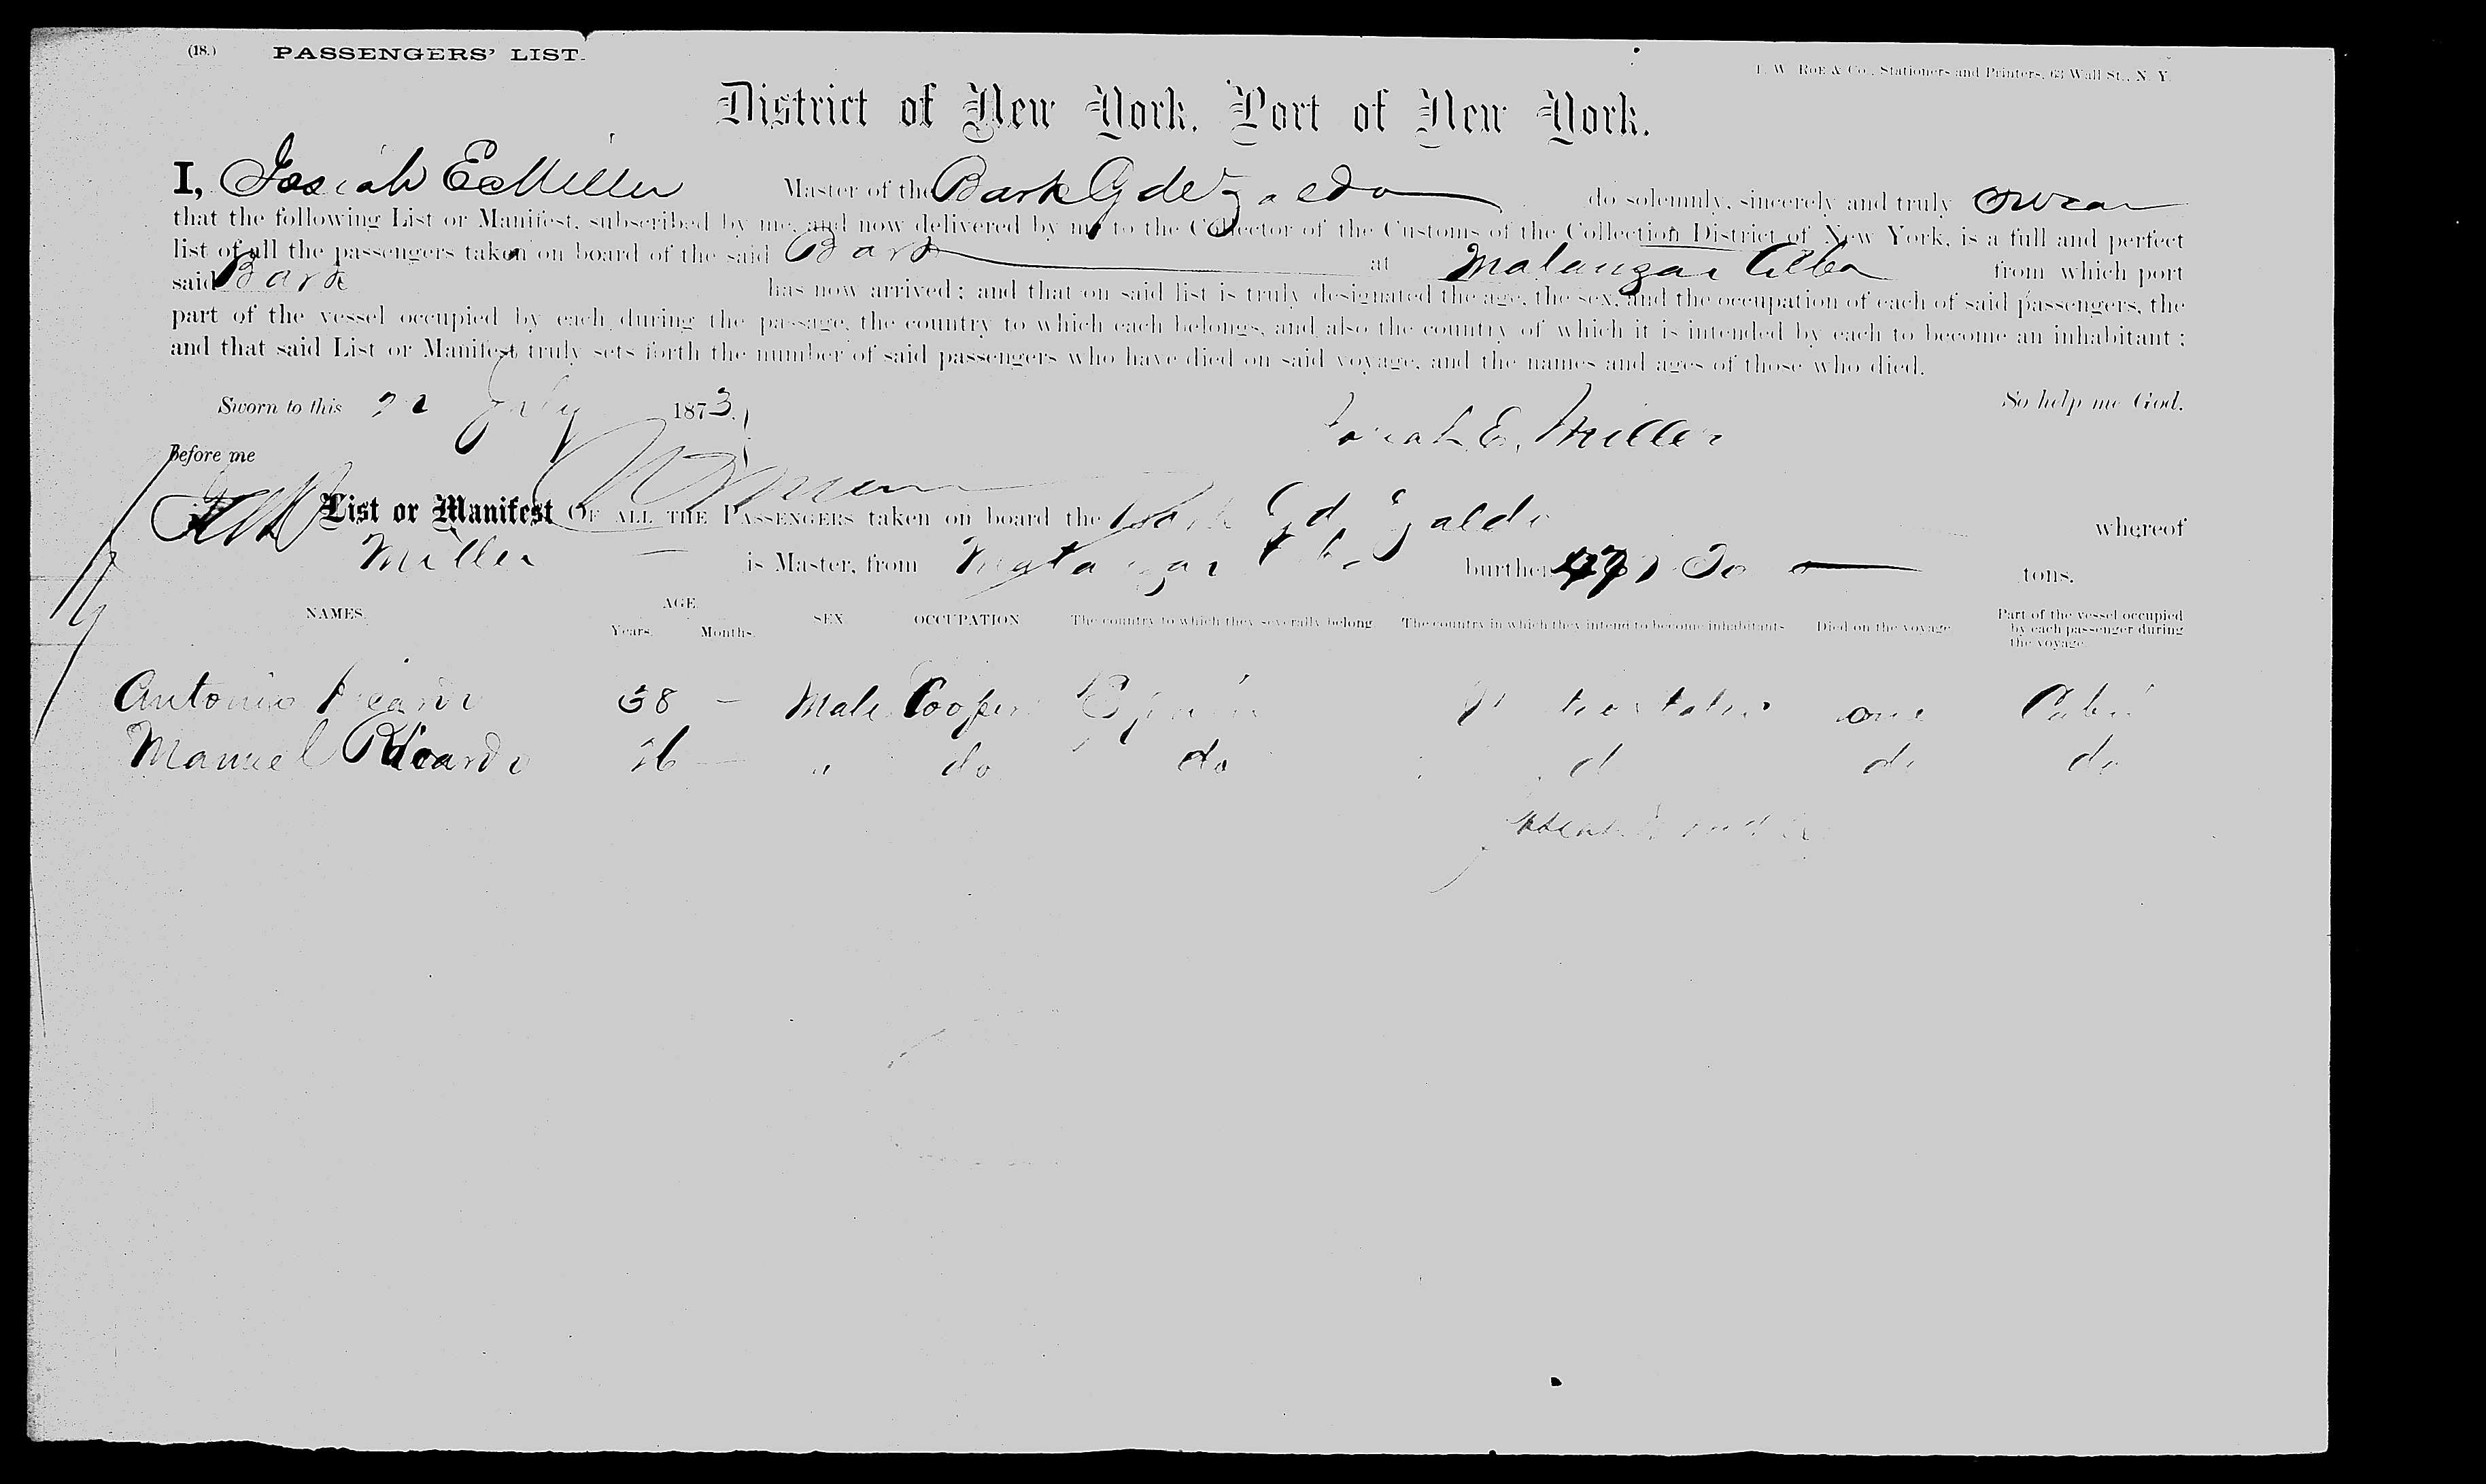 (18.) PASSENGERS' LIST.
T. W. ROE & Co., Stationers and Printers, 63 Wall St., N. Y.
District of New York, Port of New York.
I, Josiah E Miller Master of the Bark do solemnly, sincerely and truly swear
that the following List or Manifest, subscribed by me, and now delivered by me to the Collector of the Customs of the Collection District of New York, is a full and perfect
list of all the passengers taken on board of the said Bark at Matanzas Cuba from which port
said Bark has now arrived; and that on said list is truly designated the age, the sex, and the occupation of each of said passengers, the
part of the vessel occupied by each during the passage, the country to which each belongs, and also the country of which it is intended by each to become an inhabitant;
and that said List or Manifest truly sets forth the number of said passengers who have died on said voyage, and the names and ages of those who died.
So help me God.
Sworn to this 22 July 1873.
Josiah E. Miller
Before me
List or Manifest OF ALL THE PASSENGERS taken on board the Bark whereof
Miller is Master, from Matanzas burthen tons.
NAMES. AGE. Years. Months. SEX. OCCUPATION. The country to which they severally belong. The country in which they intend to become inhabitants. Died on the voyage. Part of the vessel occupied by each passenger during the voyage.
Antonio 38 – Male Cooper Cabin
Manuel Ricardo 26 – " do do do do do